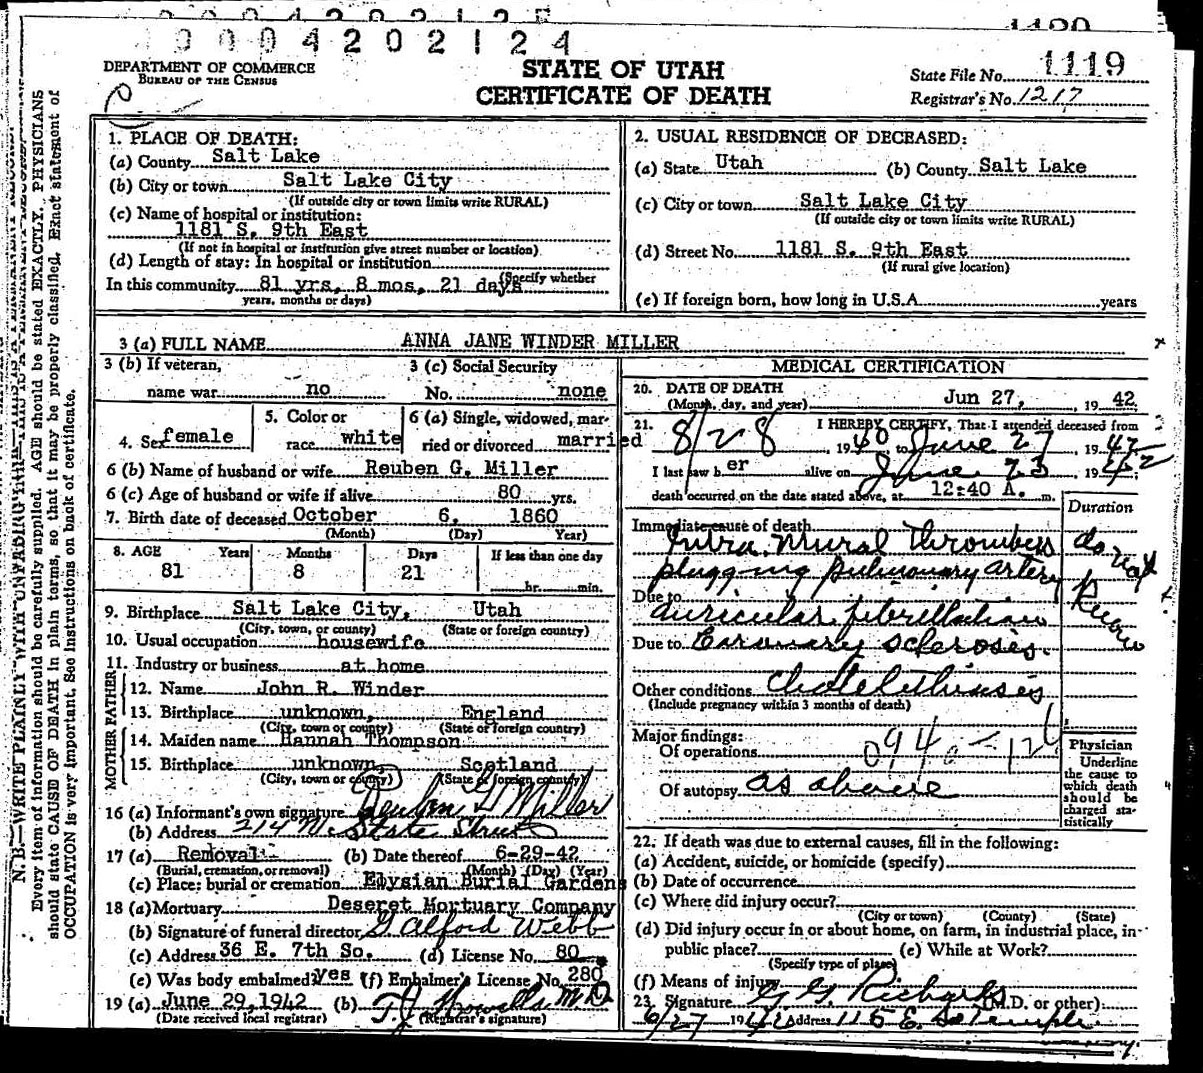 1120
0004202124
DEPARTMENT OF COMMERCE
BUREAU OF THE CENSUS
STATE OF UTAH
CERTIFICATE OF DEATH
State File No. 1119
Registrar's No. 1217
1. PLACE OF DEATH:
(a) County Salt Lake
(b) City or town Salt Lake City
(If outside city or town limits write RURAL)
(c) Name of hospital or institution:
1181 S. 9th East
(If not in hospital or institution give street number or location)
(d) Length of stay: In hospital or institution
(Specify whether
In this community 81 yrs, 8 mos, 21 days
years, months or days)
2. USUAL RESIDENCE OF DECEASED:
(a) State Utah (b) County Salt Lake
(c) City or town Salt Lake City
(If outside city or town limits write RURAL)
(d) Street No. 1181 S. 9th East
(If rural give location)
(e) If foreign born, how long in U.S.A. years
3 (a) FULL NAME ANNA JANE WINDER MILLER
3 (b) If veteran,
name war no
3 (c) Social Security
No. none
4. Sex female
5. Color or
race white
6 (a) Single, widowed, mar-
ried or divorced married
6 (b) Name of husband or wife Reuben G. Miller
6 (c) Age of husband or wife if alive 80 yrs.
7. Birth date of deceased October 6, 1860
(Month) (Day) Year)
8. AGE Years Months Days If less than one day
81 8 21 hr. min.
9. Birthplace Salt Lake City, Utah
(City, town, or county) (State or foreign country)
10. Usual occupation housewife
11. Industry or business at home
FATHER
12. Name John R. Winder
13. Birthplace unknown, England
(City, town or county) (State or foreign country)
MOTHER
14. Maiden name Hannah Thompson
15. Birthplace unknown, Scotland
(City, town or county) (State or foreign country)
16 (a) Informant's own signature Reuben G Miller
(b) Address 214 N. State Street
17 (a) Removal (b) Date thereof 6-29-42
(Burial, cremation, or removal) (Month) (Day) (Year)
(c) Place: burial or cremation Elysian Burial Gardens
18 (a) Mortuary Deseret Mortuary Company
(b) Signature of funeral director G Alford Webb
(c) Address 36 E. 7th So. (d) License No. 80
(e) Was body embalmed? yes (f) Embalmer's License No. 280
19 (a) June 29, 1942 (b) T. J. Howells M.D
(Date received local registrar) (Registrar's signature)
MEDICAL CERTIFICATION
20. DATE OF DEATH
(Month, day, and year) Jun 27, 19 42
21. I HEREBY CERTIFY, That I attended deceased from
8/28, 1940 to June 27 1942
I last saw her alive on June 23 1942
death occurred on the date stated above, at 12:40 A. m.
Duration
Immediate cause of death
Intra Mural Thrombus
plugging pulmonary artery
do not
Know
Due to auricular fibrillation
Due to Coronary sclerosis.
Other conditions Cholelithiasis
(Include pregnancy within 3 months of death)
Major findings:
Of operations
094
Of autopsy as above
Physician
Underline
the cause to
which death
should be
charged sta-
tistically
22. If death was due to external causes, fill in the following:
(a) Accident, suicide, or homicide (specify)
(b) Date of occurrence
(c) Where did injury occur?
(City or town) (County) (State)
(d) Did injury occur in or about home, on farm, in industrial place, in
public place? (e) While at Work?
(Specify type of place)
(f) Means of injury
23. Signature G. G. Richards (M.D. or other)
6/27 1942 Address 115 E. So Temple
N. B.—WRITE PLAINLY WITH UNFADING INK—THIS IS A PERMANENT RECORD
Every item of information should be carefully supplied. AGE should be stated EXACTLY. PHYSICIANS
should state CAUSE OF DEATH in plain terms, so that it may be properly classified. Exact statement of
OCCUPATION is very important. See instructions on back of certificate.